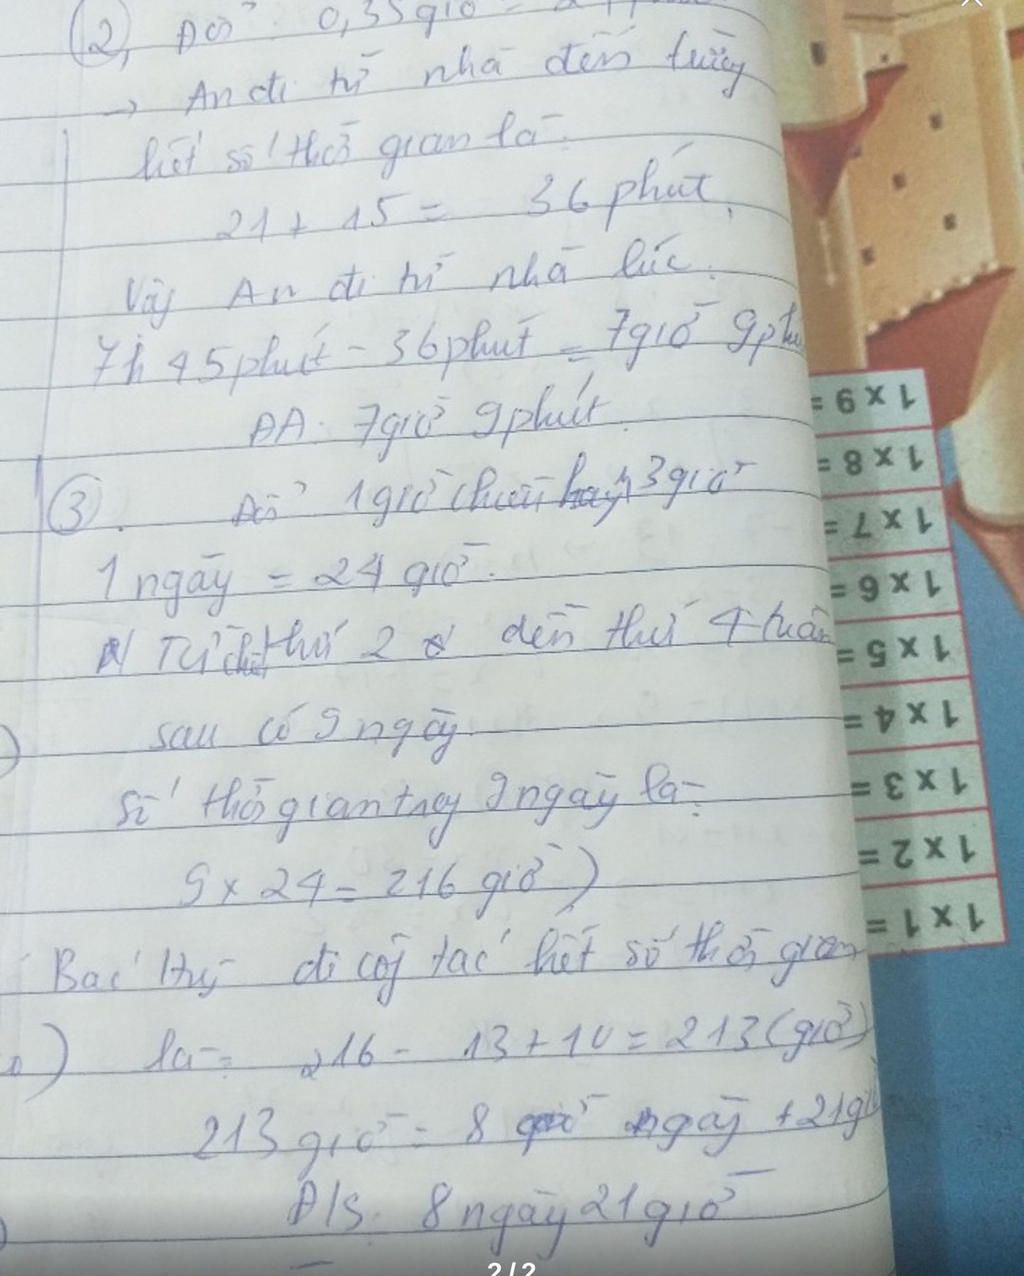 2, Đổi 0,35 giờ = 21
→ An đi từ nhà đến trường
hết số thời gian là:
21 + 15 = 36 phút.
Vậy An đi từ nhà lúc:
7h 45 phút - 36 phút = 7 giờ 9 phú
ĐA: 7 giờ 9 phút.
3. Đổi 1 giờ chiều 13 giờ
1 ngày = 24 giờ.
Từ thứ 2 đến thứ 4 tuần
sau có 9 ngày
Số thời gian trong 9 ngày là:
9 x 24 = 216 giờ)
Bác đi công tác hết số thời gian
là: 216 - 13 + 10 = 213 (giờ)
213 giờ = 8 ngày + 21 gi
Đ/S: 8 ngày 21 giờ
2 / 2
1 x 1 =
1 x 2 =
1 x 3 =
1 x 4 =
1 x 5 =
1 x 6 =
1 x 7 =
1 x 8 =
1 x 9 =